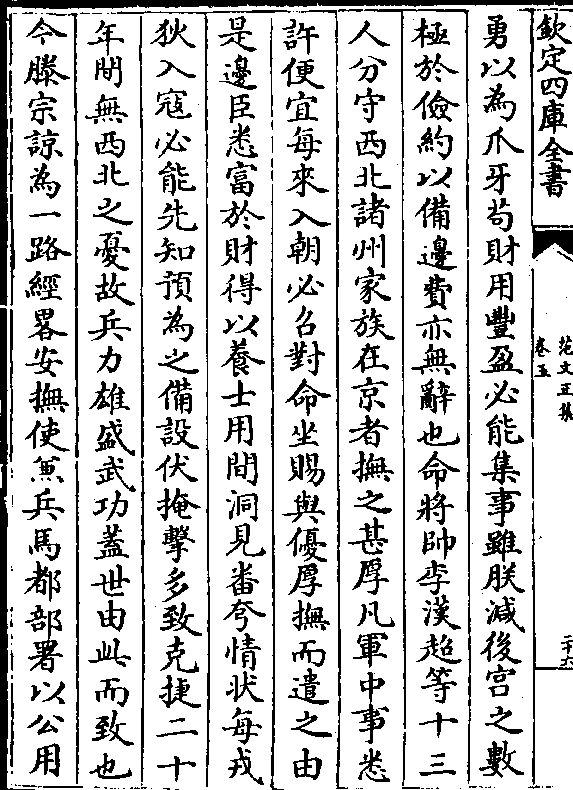 欽定四庫全書
范文正集
卷五
二十六
勇以為爪牙苟財用豐盈必能集事雖朕減後宫之數
極於儉約以備邊費亦無辭也命將帥李漢超等十三
人分守西北諸州家族在京者撫之甚厚凡軍中事悉
許便宜每來入朝必召對命坐賜與優厚撫而遣之由
是邊臣悉富於財得以養士用間洞見番夸情狀每戎
狄入寇必能先知預為之備設伏掩擊多致克捷二十
年間無西北之憂故兵力雄盛武功蓋世由此而致也
今滕宗諒為一路經畧安撫使兼兵馬都部署以公用